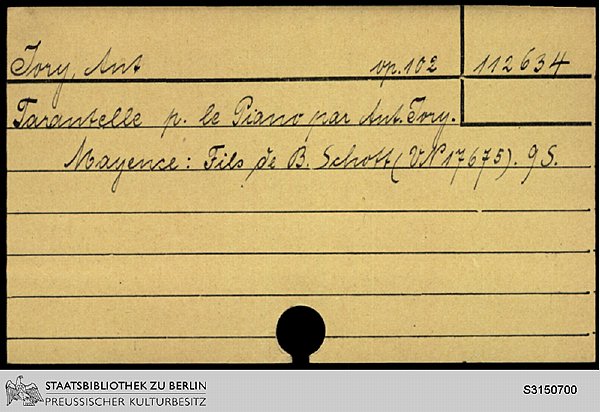 Tory, Ant op. 102 112634
Tarantelle p. le Piano par Ant. Tory.
Mayence: Fils de B. Schott (VN 17675). 9 S.
STAATSBIBLIOTHEK ZU BERLIN
PREUSSISCHER KULTURBESITZ
S3150700